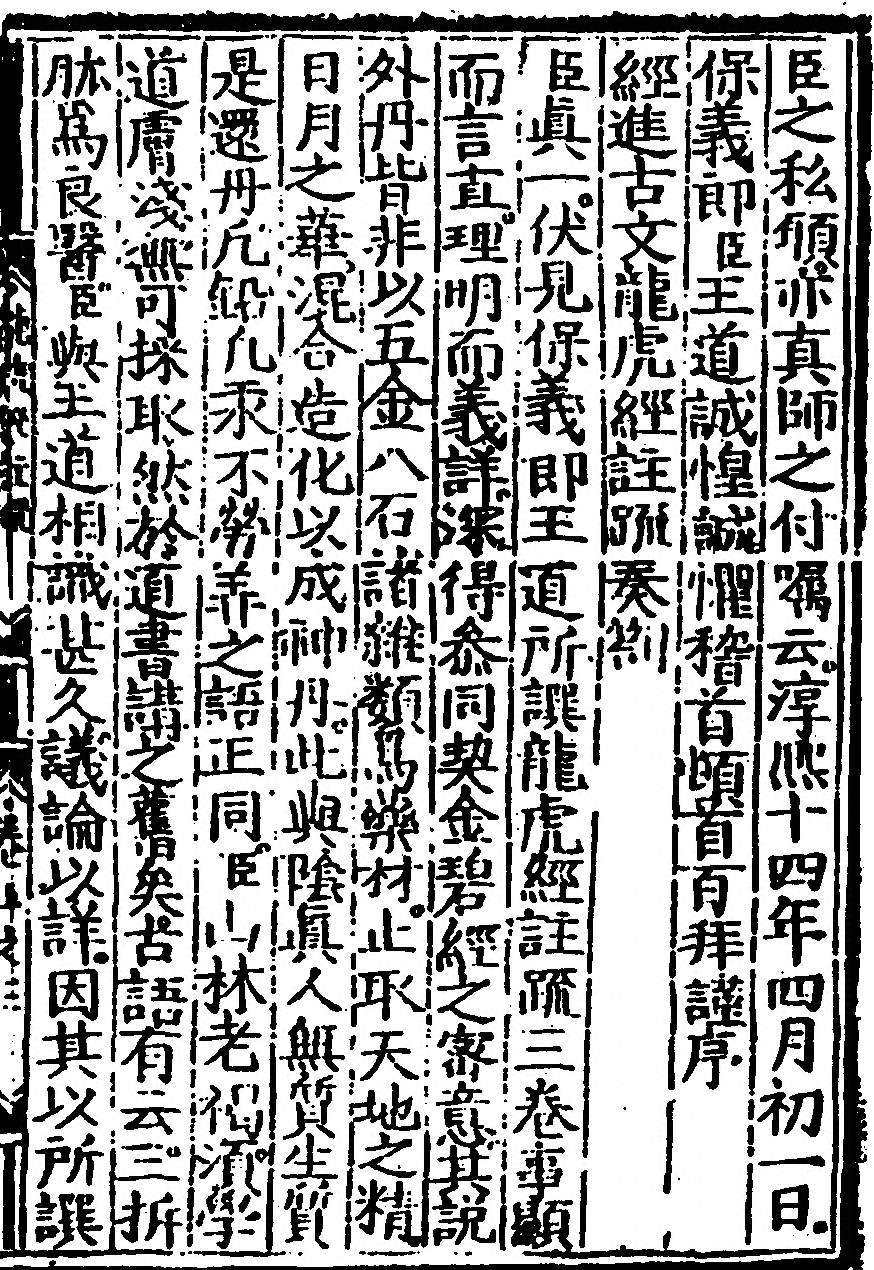 臣之私願亦真師之付囑云淳熙十四年四月初一日
保義郎臣王道誠惶誠懼稽首頓首百拜謹序
經進古文龍虎經註疏奏劄
臣眞一伏見保義郎王道所譔龍虎經註疏三卷事顯
而言直理明而義詳深得叅同契金碧經之密意其說
外丹皆非以五金八石諸雜類爲藥材止取天地之精
日月之華混合造化以成神丹此與陰眞人無質生質
是還丹凡鉛凡汞不勞弄之語正同臣山林老𥡴湏學
道膚淺無可採取然於道書講之舊矣古語有云三折
肱爲良醫臣與王道相識甚久議論以詳因其以所譔